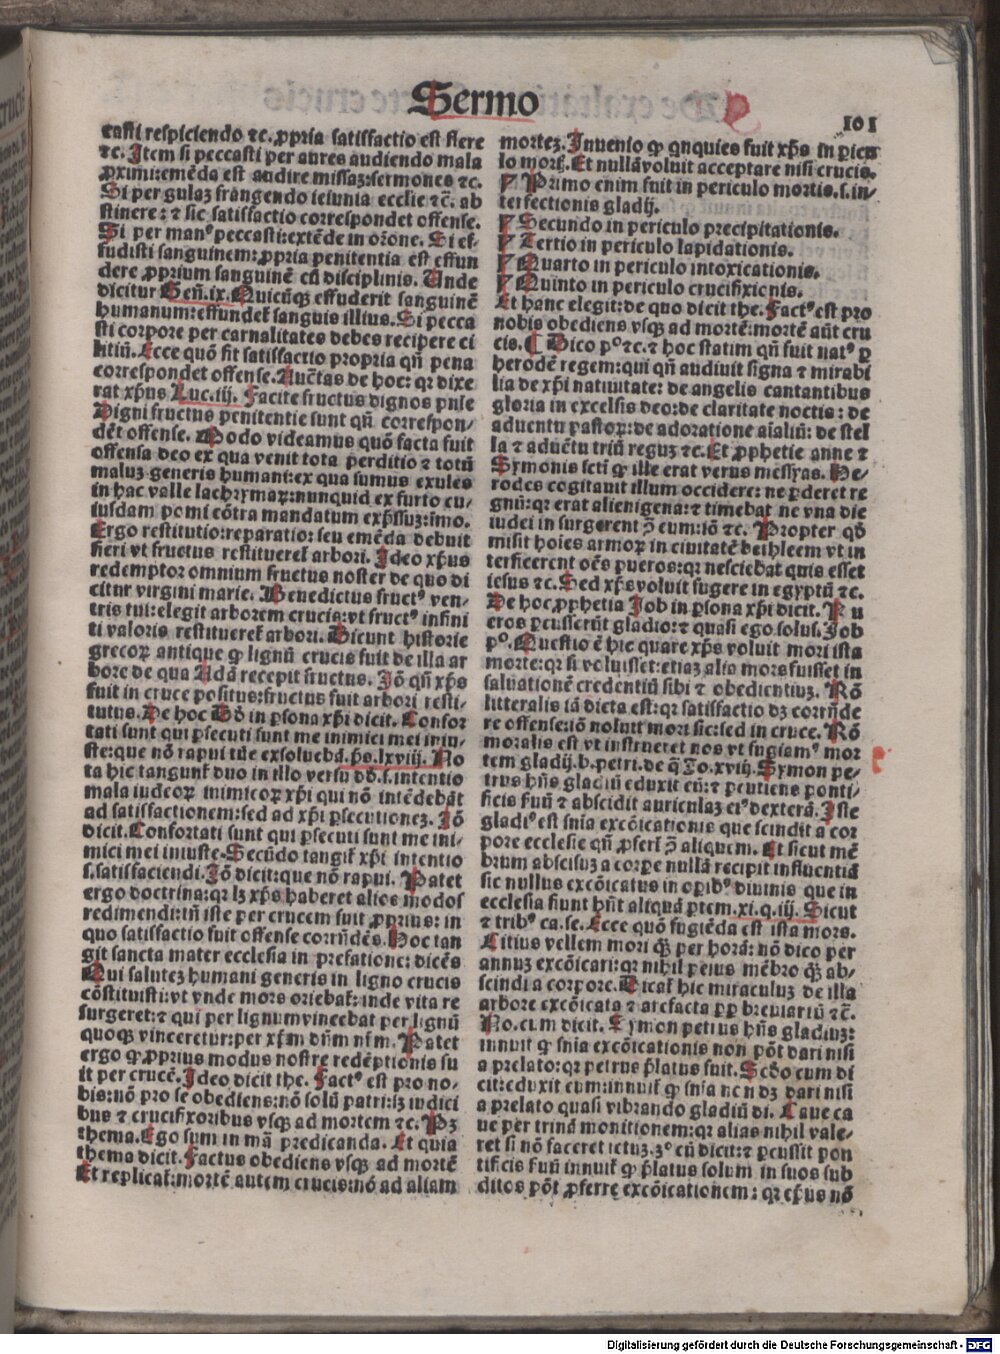 Sermo
101
casti respiciendo ⁊c. ꝓpria satisfactio est flere
⁊c. Item si peccasti per aures audiendo mala
ꝓximi: emēda est audire missaꝫ: sermones ⁊c.
Si per gulaꝫ frangendo ieiunia ecclie ⁊c̄. ab
stinere: ⁊ sic satisfactio correspondet offense.
Si per manꝰ peccasti: extēde in orōne. Si ef⸗
fudisti sanguinem: ꝓpria penitentia est effun
dere ꝓprium sanguinē cū disciplinis. Unde
dicitur Gen̄. ix. Quicūqꝫ effuderit sanguinē
humanum: effundet᷑ sanguis illius. Si pecca
sti corpore per carnalitates debes recipere ci
litiū. Ecce quō fit satisfactio propria qn̄ pena
correspondet offense. Auctas de hoc: qꝛ dixe
rat xp̄us Luc. iij. Facite fructus dignos pnīe
Digni fructus penitentie sunt qn̄ correspon⸗
dēt offense. Modo videamus quō facta fuit
offensa deo ex qua venit tota perditio ⁊ totū
maluꝫ generis humani: ex qua sumus exules
in hac valle lachrymaꝝ: nunquid ex furto cu⸗
iusdam pomi cōtra mandatum exp̄ssuꝫ: imo.
Ergo restitutio: reparatio: seu emēda debuit
fieri vt fructus restitueret᷑ arbori. Ideo xp̄us
redemptor omnium fructus noster de quo di
citur virgini marie. Benedictus fructꝰ ven⸗
tris tui: elegit arborem crucis: vt fructꝰ infini
ti valoris restitueret᷑ arbori. Dicunt historie
grecoꝝ antique ꝙ lignū crucis fuit de illa ar
bore de qua Adā recepit fructus. Iō qn̄ xp̄s
fuit in cruce positus: fructus fuit arbori resti⸗
tutus. De hoc Dd̄ in ꝑsona xp̄i dicit. Confor
tati sunt qui ꝑsecuti sunt me inimici mei iniu⸗
ste: que nō rapui tūc exsoluebā. ps̄. lxviij. No
ta hic tangunt᷑ duo in illo versu dd̄. s. intentio
mala iudeoꝝ inimicoꝝ xp̄i qui nō intēdebāt
ad satisfactionem: sed ad xp̄i ꝑsecutioneꝫ. Iō
dicit. Confortati sunt qui ꝑsecuti sunt me ini⸗
mici mei iniuste. Secūdo tangit᷑ xp̄i intentio
s. satisfaciendi. Iō dicit: que nō rapui. Patet
ergo doctrina: qꝛ lꝫ xp̄s haberet alios modos
redimendi: tn̄ iste per crucem fuit ꝓprius: in
quo satisfactio fuit offense corrn̄dēs. Hoc tan
git sancta mater ecclesia in prefatione: dicēs
Qui saluteꝫ humani generis in ligno crucis
cōstituisti: vt vnde mors oriebat᷑: inde vita re
surgeret: ⁊ qui per lignum vincebat per lignū
quoqꝫ vinceretur: per xp̄m dn̄m nr̄m. Patet
ergo ꝙ ꝓprius modus nostre redēptionis fu
it per crucē. Ideo dicit the. Factꝰ est pro no⸗
bis: nō pro se obediens: nō solū patri: sꝫ iudici
bus ⁊ crucifixoribus vsqꝫ ad mortem ⁊c. Pꝫ
thema. Ego sum in mā predicanda. Et quia
thema dicit. Factus obediens vsqꝫ ad mortē
Et replicat᷑: mortē autem crucis: nō ad aliam
morteꝫ. Inuenio ꝙ qnquies fuit xp̄s in ꝑicu
lo mort̄. Et nullā voluit acceptare nisi crucis.
Primo enim fuit in periculo mortis. s. in⸗
terfectionis gladij.
Secundo in periculo precipitationis.
Tertio in periculo lapidationis.
Quarto in periculo intoxicationis.
Quinto in periculo crucifixionis.
Et hanc elegit: de quo dicit the. Factꝰ est pro
nobis obediens vsqꝫ ad mortē: mortē aūt cru
cis. ¶ Dico pº ⁊c. ⁊ hoc statim qn̄ fuit natꝰ ꝑ
herodē regem: qui qn̄ audiuit signa ⁊ mirabi
lia de xp̄i natiuitate: de angelis cantantibus
gloria in excelsis deo: de claritate noctis: de
aduentu pastoꝝ: de adoratione aīaliū: de stel
la ⁊ aduētu triū reguꝫ ⁊c. Et ꝓphetie anne ⁊
Symonis scti ꝙ ille erat verus messyas. He⸗
rodes cogitauit illum occidere: ne ꝑderet re
gnū: qꝛ erat alienigena: ⁊ timebat ne vna die
iudei insurgerent ꝯ̄ eum: iō ⁊c. Propter qd̄
misit hoīes armoꝝ in ciuitatē bethleem vt in
terficerent oēs pueros: qꝛ nesciebat quis esset
iesus ⁊c. Sed xp̄s voluit fugere in egyptū ⁊c.
De hoc ꝓphetia Iob in ꝑsona xp̄i dicit. Pu
eros ꝑcusserūt gladio: ⁊ quasi ego solus. Iob
pº. Questio ē hic quare xp̄s voluit mori ista
morte: qꝛ si voluisset: etiaꝫ alia mors fuisset in
saluationē credentiū sibi ⁊ obedientiuꝫ. Rō
litteralis iā dicta est: qꝛ satisfactio dꝫ corrn̄de
re offense: iō noluit mori sic: sed in cruce. Rō
moralis est vt instrueret nos vt fugiamꝰ mor
tem gladij. b. petri. de q̄ Io. xviij. Symon pe⸗
trus hn̄s gladiū eduxit eū: ⁊ ꝑcutiens ponti⸗
ficis fuū ⁊ abscidit auriculaꝫ eiꝰ dexterā. Iste
gladiꝰ est snīa excōicationis que scindit a cor
pore ecclesie qn̄ ꝓfert᷑ ꝯ̄ aliquem. Et sicut mē
brum abscisuꝫ a corꝑe nullā recipit influentiā
sic nullus excōicatus in oꝑibꝰ diuinis que in
ecclesia fiunt hn̄t aliquā ꝑtem. xi. q. iij. Sicut
⁊ tribꝰ ca. se. Ecce quō fugiēda est ista mors.
Citius vellem mori qꝫ̄ per horā: nō dico per
annuꝫ excōicari: qꝛ nihil peius mēbro qꝫ̄ ab⸗
scindi a corpore. Dicat᷑ hic miraculuꝫ de illa
arbore excōicata ⁊ arefacta ꝓp̄ breuiariū ⁊c̄.
No. cum dicit. Symon petrus hn̄s gladiuꝫ:
innuit ꝙ snīa excōicationis non pōt dari nisi
a prelato: qꝛ petrus p̄latus fuit. Scdo cum di
cit: eduxit eum: innuit᷑ ꝙ snīa nō dꝫ dari nisi
a prelato quasi vibrando gladiū di. Caue ca
ue per trinā monitionem: qꝛ alias nihil vale⸗
ret si nō faceret ictuꝫ. 3º cū dicit: ⁊ ꝑcussit pon
tificis fuū innuit᷑ ꝙ p̄latus solum in suos sub
ditos pōt ꝓferre excōicationem: qꝛ ep̄us nō
Digitalisierung gefördert durch die Deutsche Forschungsgemeinschaft - DFG